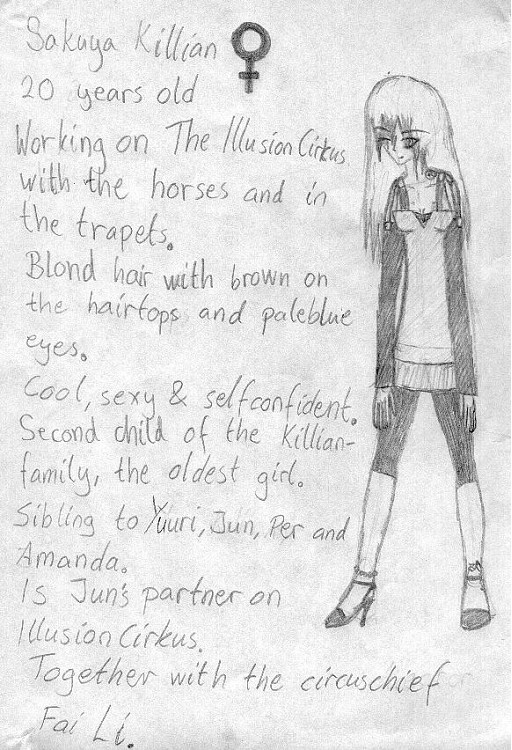 Sakuya Killian ♀
20 years old
Working on The Illusion Cirkus
with the horses and in
the trapets.
Blond hair with brown on
the hairtops and paleblue
eyes.
Cool, sexy & selfconfident.
Second child of the Killian-
family, the oldest girl.
Sibling to Yuuri, Jun, Per and
Amanda.
Is Jun's partner on
Illusion Cirkus.
Together with the circuschief
Fai Li.